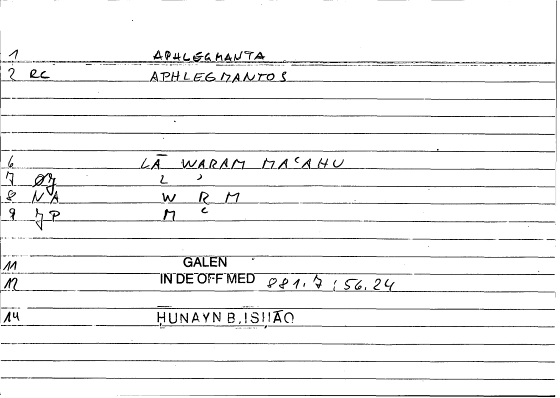 1 APHLEGMANTA
2 RC APHLEGMANTOS
6 LĀ WARAM MAʿAHU
7 L ʾ
8 NA W R M
9 JP M ʿ
11 GALEN
12 IN DE OFF MED 881.7;56.24
14 ḤUNAYN B. ISḤĀQ